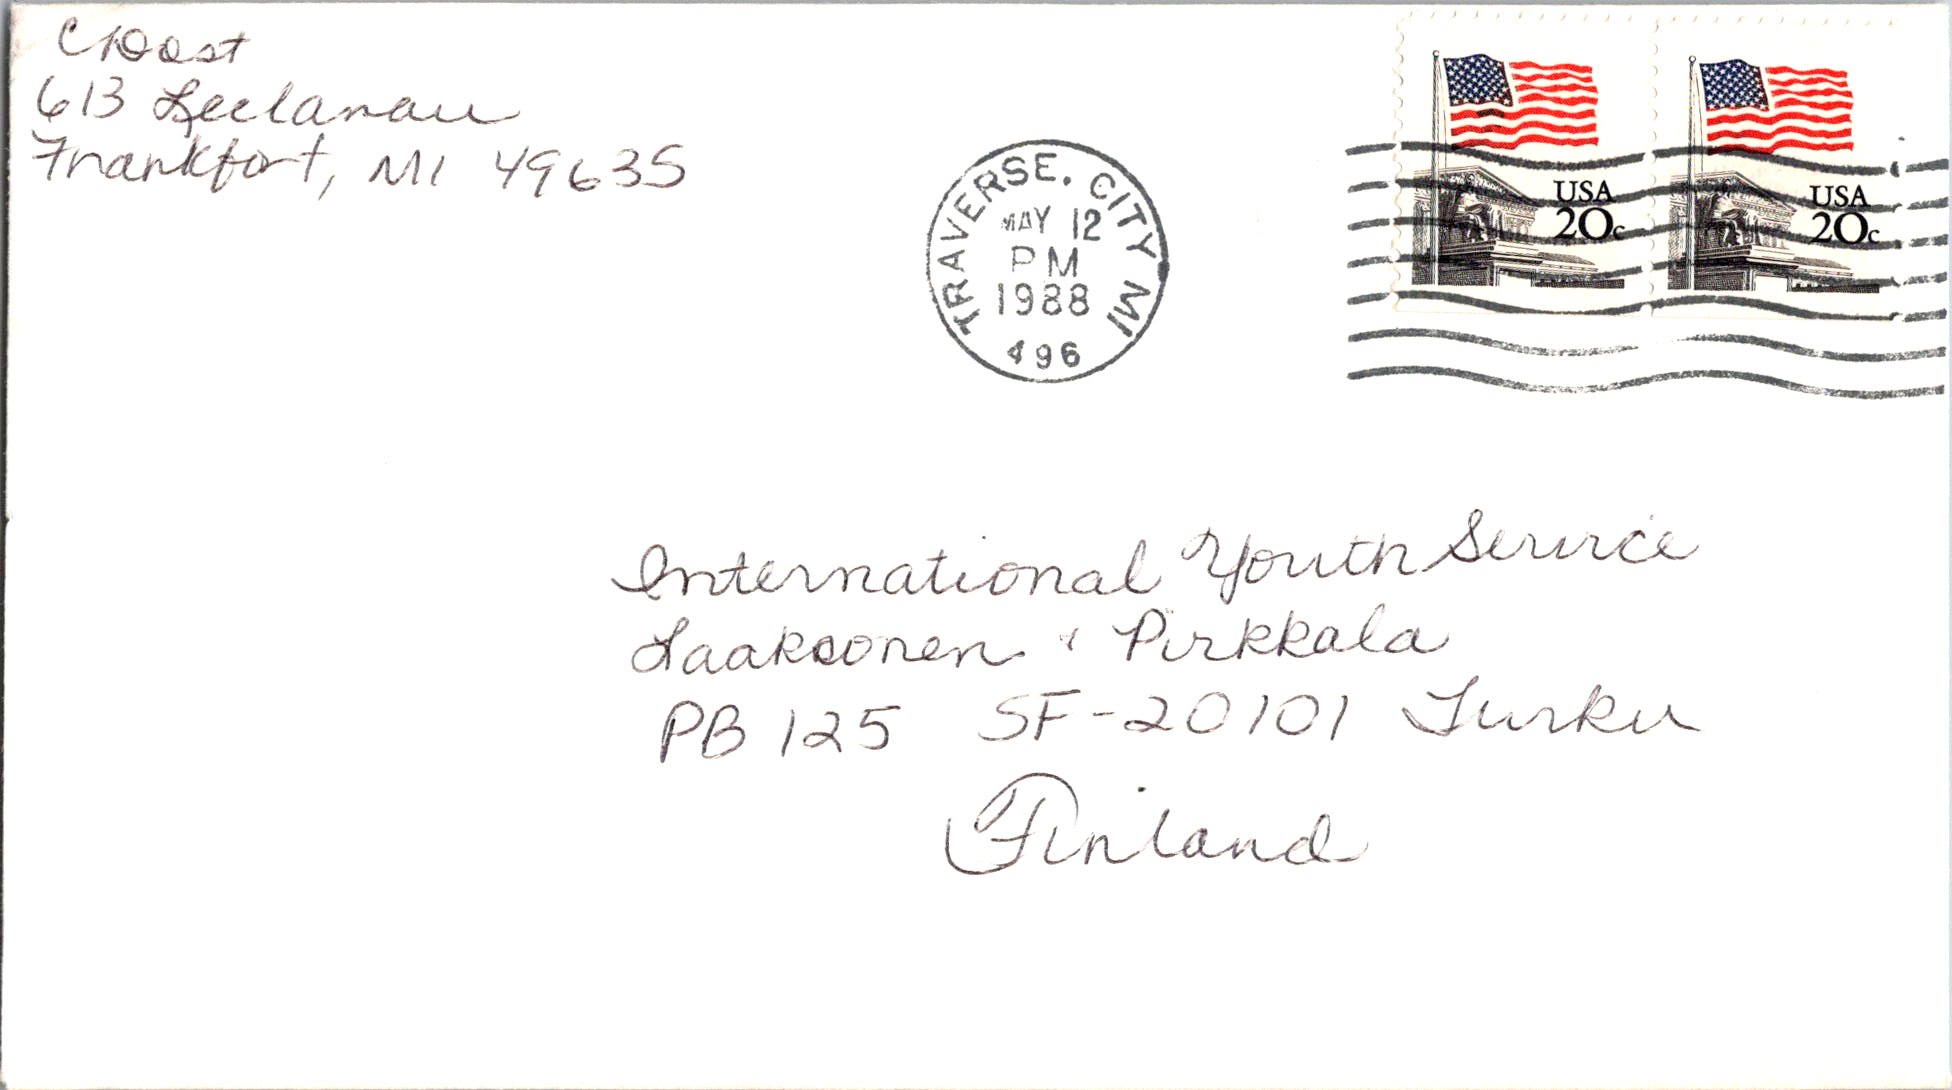 613 Leelanau
Frankfort, MI 49635
TRAVERSE. CITY MI
MAY 12
PM
1988
496
USA
20c
USA
20c
International Youth Service
Laaksonen & Pirkkala
PB 125 SF-20101 Turku
Finland